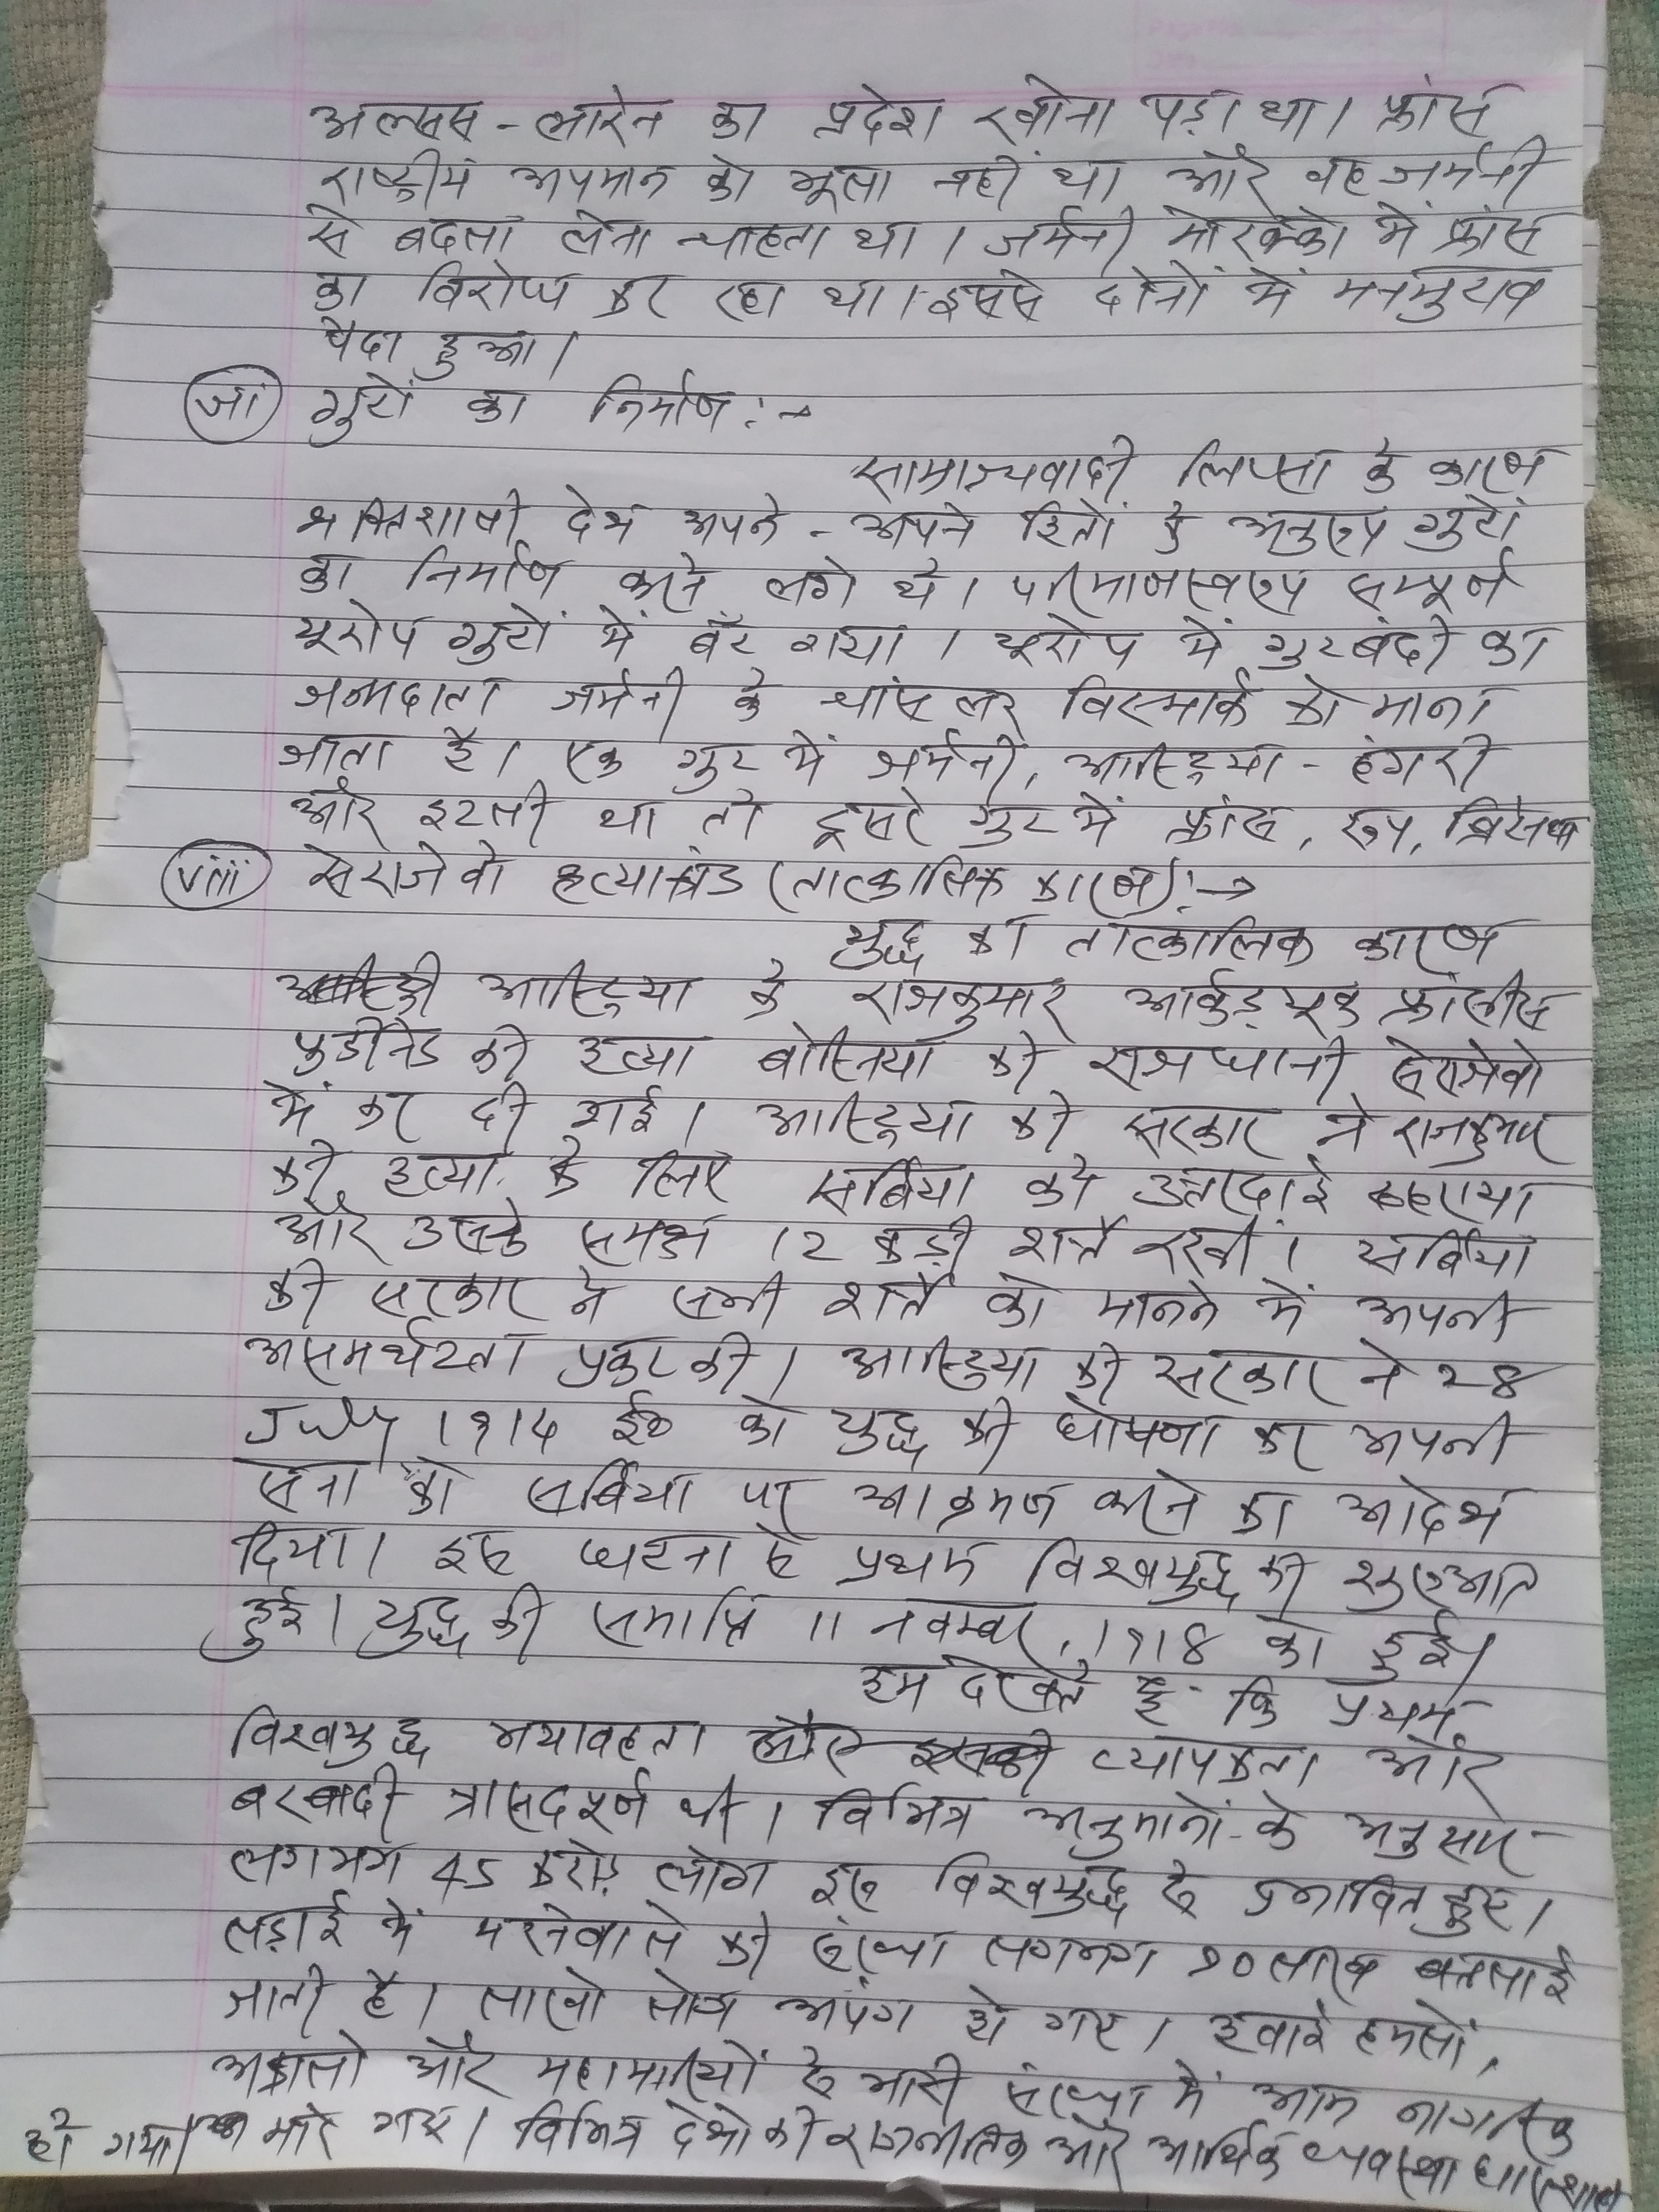 अल्सस - लारेन का प्रदेश खोना पड़ा था। फ्रांस
राष्ट्रीय अपमान को भूला नहीं था और वह जर्मनी
से बदला लेना चाहता था। जर्मनी मोरक्को में फ्रांस
का विरोध कर रहा था। इससे दोनों में मनमुटाव
पैदा हुआ।
गुटों का निर्माण :→
साम्राज्यवादी लिप्सा के कारण
शक्तिशाली देश अपने - अपने हितों के अनुरूप गुटों
का निर्माण करने लगे थे। परिमाणस्वरूप सम्पूर्ण
यूरोप गुटों में बँट गया। यूरोप में गुटबंदी का
जन्मदाता जर्मनी के चांसलर विस्मार्क को माना
जाता है। एक गुट में जर्मनी, आस्ट्रिया - हंगरी
और इटली था तो दूसरे गुट में फ्रांस, रूस, ब्रिटेन
viii सेराजेवो हत्याकांड (तात्कालिक कारण) :→
युद्ध का तात्कालिक कारण
आस्ट्रिया के राजकुमार आर्कड्यूक फ्रांसीस
फर्डीनेंड की हत्या बोस्निया की राजधानी सेराजेवो
में कर दी गई। आस्ट्रिया की सरकार ने राजकुमार
की हत्या के लिए सर्बिया को उत्तरदाई ठहराया
और उसके समक्ष 12 कड़ी शर्तें रखी। सर्बिया
की सरकार ने सभी शर्तें को मानने में अपनी
असमर्थटता प्रकट की। आस्ट्रिया की सरकार ने 28
July 1914 ई० को युद्ध की घोषणा कर अपनी
सेना को सर्बिया पर आक्रमण करने का आदेश
दिया। इस घटना से प्रथम विश्वयुद्ध की शुरुआत
हुई। युद्ध की समाप्ति 11 नवम्बर, 1918 को हुई।
हम देखते है कि प्रथम
विश्वयुद्ध भयावहता व्यापकता और
बरबादी त्रासदपूर्ण थी। विभिन्न अनुमानों के अनुसार
लगभग 45 करोड़ लोग इस विश्वयुद्ध से प्रभावित हुए।
लड़ाई में मरनेवाले की संख्या लगभग 90 लाख बतलाई
जाती है। लाखो लोग अपंग हो गए। हवाई हमलों,
अकालो और महामारियों से भारी संख्या में आम नागरिक
मारे गए। विभिन्न देशो की राजनीतिक और आर्थिक व्यवस्था
हो गया।